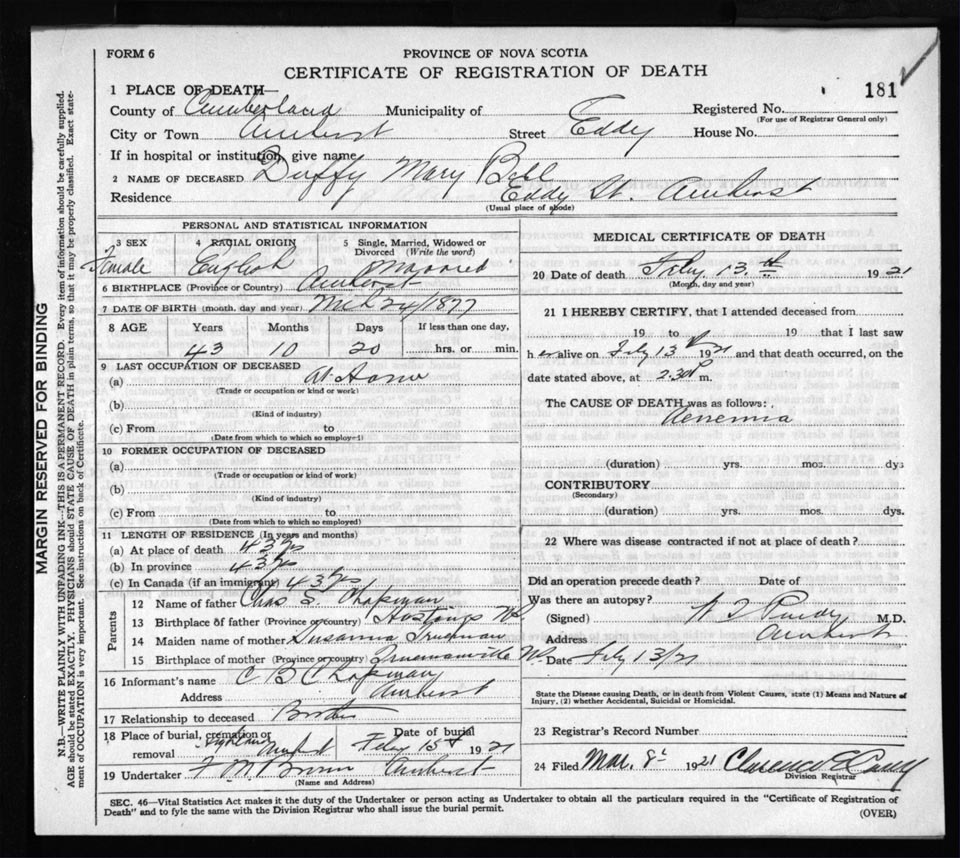 FORM 6
PROVINCE OF NOVA SCOTIA
CERTIFICATE OF REGISTRATION OF DEATH
181
1 PLACE OF DEATH—
County of Cumberland Municipality of Registered No.
(For use of Registrar General only)
City or Town Amherst Street Eddy House No.
If in hospital or institution, give name
2 NAME OF DECEASED Duffy Mary Bell
Residence Eddy St. Amherst
(Usual place of abode)
PERSONAL AND STATISTICAL INFORMATION
3 SEX 4 RACIAL ORIGIN 5 Single, Married, Widowed or Divorced (Write the word)
Female English Married
6 BIRTHPLACE (Province or Country) Amherst
7 DATE OF BIRTH (month, day and year) Mch 24/1877
8 AGE Years Months Days If less than one day,
43 10 20 hrs. or min.
9 LAST OCCUPATION OF DECEASED
(a) At Home
(Trade or occupation or kind of work)
(b)
(Kind of industry)
(c) From to
(Date from which to which so employed)
10 FORMER OCCUPATION OF DECEASED
(a)
(Trade or occupation or kind of work)
(b)
(Kind of industry)
(c) From to
(Date from which to which so employed)
11 LENGTH OF RESIDENCE (In years and months)
(a) At place of death 43 yrs
(b) In province 43 yrs
(c) In Canada (if an immigrant) 43 yrs
Parents
12 Name of father Chas S. Chapman
13 Birthplace of father (Province or country) Hastings NS.
14 Maiden name of mother Susanna Trueman
15 Birthplace of mother (Province or country) Truemanville NS.
16 Informant's name C B Chapman
Address Amherst
17 Relationship to deceased Brother
18 Place of burial, cremation or removal Highland Amherst Date of burial Feby 15th 1921
19 Undertaker Amherst
(Name and Address)
MEDICAL CERTIFICATE OF DEATH
20 Date of death Feby. 13th 1921
(Month, day and year)
21 I HEREBY CERTIFY, that I attended deceased from
19 to 19 that I last saw
h er alive on Feby 13 1921 and that death occurred, on the
date stated above, at 2.30 P m.
The CAUSE OF DEATH was as follows:
Aenemia
(duration) yrs. mos. dys
CONTRIBUTORY
(Secondary)
(duration) yrs. mos. dys.
22 Where was disease contracted if not at place of death?
Did an operation precede death? Date of
Was there an autopsy?
(Signed) M.D.
Address Amherst
Date Feby 13/21
State the Disease causing Death, or in death from Violent Causes, state (1) Means and Nature of
Injury, (2) whether Accidental, Suicidal or Homicidal.
23 Registrar's Record Number
24 Filed Mar. 8th 1921 Clarence
Division Registrar
SEC. 46—Vital Statistics Act makes it the duty of the Undertaker or person acting as Undertaker to obtain all the particulars required in the "Certificate of Registration of
Death" and to fyle the same with the Division Registrar who shall issue the burial permit.
(OVER)
MARGIN RESERVED FOR BINDING
N.B.—WRITE PLAINLY WITH UNFADING INK—THIS IS A PERMANENT RECORD. Every item of information should be carefully supplied.
AGE should be stated EXACTLY. PHYSICIANS should STATE CAUSE OF DEATH in plain terms, so that it may be properly classified. Exact state-
ment of OCCUPATION is very important. See instructions on back of Certificate.